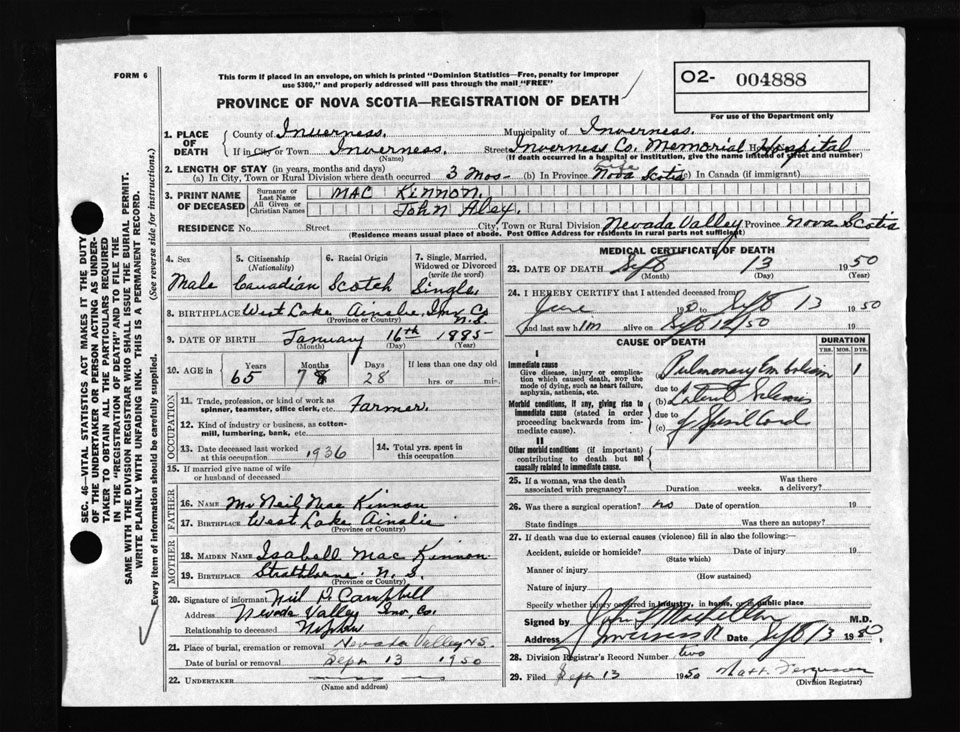 FORM 6
This form if placed in an envelope, on which is printed "Dominion Statistics—Free, penalty for improper
use $300," and properly addressed will pass through the mail "FREE"
O2- 004888
For use of the Department only
PROVINCE OF NOVA SCOTIA—REGISTRATION OF DEATH
1. PLACE OF DEATH
County of Inverness. Municipality of Inverness.
If in City or Town Inverness. Street Inverness Co. Memorial Hospital
(Name) (If death occurred in a hospital or institution, give the name instead of street and number)
2. LENGTH OF STAY (in years, months and days)
(a) In City, Town or Rural Division where death occurred 3 mos- (b) In Province life Nova Scotia (c) In Canada (if immigrant)
3. PRINT NAME OF DECEASED
Surname or Last Name MAC KINNON.
All Given or Christian Names John Alex.
RESIDENCE No. Street City, Town or Rural Division Nevada Valley Province Nova Scotia
(Residence means usual place of abode. Post Office Address for residents in rural parts not sufficient)
4. Sex Male
5. Citizenship (Nationality) Canadian
6. Racial Origin Scotch
7. Single, Married, Widowed or Divorced (write the word) Single
8. BIRTHPLACE West Lake Ainslie, Inv Co N.S.
(Province or Country)
9. DATE OF BIRTH January 16th 1885
(Month) (Day) (Year)
10. AGE in Years 65 Months 7 8 Days 28 If less than one day old
hrs. or min.
OCCUPATION
11. Trade, profession, or kind of work as spinner, teamster, office clerk, etc. Farmer.
12. Kind of industry or business, as cotton-mill, lumbering, bank, etc.
13. Date deceased last worked at this occupation 1936
14. Total yrs. spent in this occupation
15. If married give name of wife or husband of deceased
FATHER
16. NAME Mr Neil Mac Kinnon
17. BIRTHPLACE West Lake Ainslie
(Province or Country)
MOTHER
18. MAIDEN NAME Isabell Mac Kinnon
19. BIRTHPLACE Strathlorne N.S.
(Province or Country)
20. Signature of informant Neil D. Campbell
Address Nevada Valley Inv. Co.
Relationship to deceased Nephew
21. Place of burial, cremation or removal Nevada Valley N.S.
Date of burial or removal Sept 13 1950
22. UNDERTAKER
(Name and address)
MEDICAL CERTIFICATE OF DEATH
23. DATE OF DEATH Sept 13 1950
(Month) (Day) (Year)
24. I HEREBY CERTIFY that I attended deceased from
June 1950 to Sept 13 1950
and last saw him alive on Sept 12/50 19
CAUSE OF DEATH
DURATION
YRS. MOS. DYS.
I
Immediate cause
Give disease, injury or complication which caused death, NOT the mode of dying, such as heart failure, asphyxia, asthenia, etc.
(a) Pulmonary Embolism 1
due to
Morbid conditions, if any, giving rise to immediate cause (stated in order proceeding backwards from immediate cause).
(b) Lateral Sclerosis
due to
(c) of Spinal Cord
II
Other morbid conditions (if important) contributing to death but not causally related to immediate cause.
25. If a woman, was the death associated with pregnancy? Duration weeks. Was there a delivery?
26. Was there a surgical operation? no Date of operation 19
State findings Was there an autopsy?
27. If death was due to external causes (violence) fill in also the following:
Accident, suicide or homicide? Date of injury 19
(State which)
Manner of injury
(How sustained)
Nature of injury
Specify whether injury occurred in industry, in home, or in public place
Signed by M.D.
Address Inverness Date Sept 13 1950
28. Division Registrar's Record Number two
29. Filed Sept. 13 1950 Matt. Ferguson
(Division Registrar)
SEC. 46—VITAL STATISTICS ACT MAKES IT THE DUTY
OF THE UNDERTAKER OR PERSON ACTING AS UNDER-
TAKER TO OBTAIN ALL THE PARTICULARS REQUIRED
IN THE "REGISTRATION OF DEATH" AND TO FILE THE
SAME WITH THE DIVISION REGISTRAR WHO SHALL ISSUE THE BURIAL PERMIT.
WRITE PLAINLY WITH UNFADING INK. THIS IS A PERMANENT RECORD.
Every item of information should be carefully supplied. (See reverse side for instructions.)